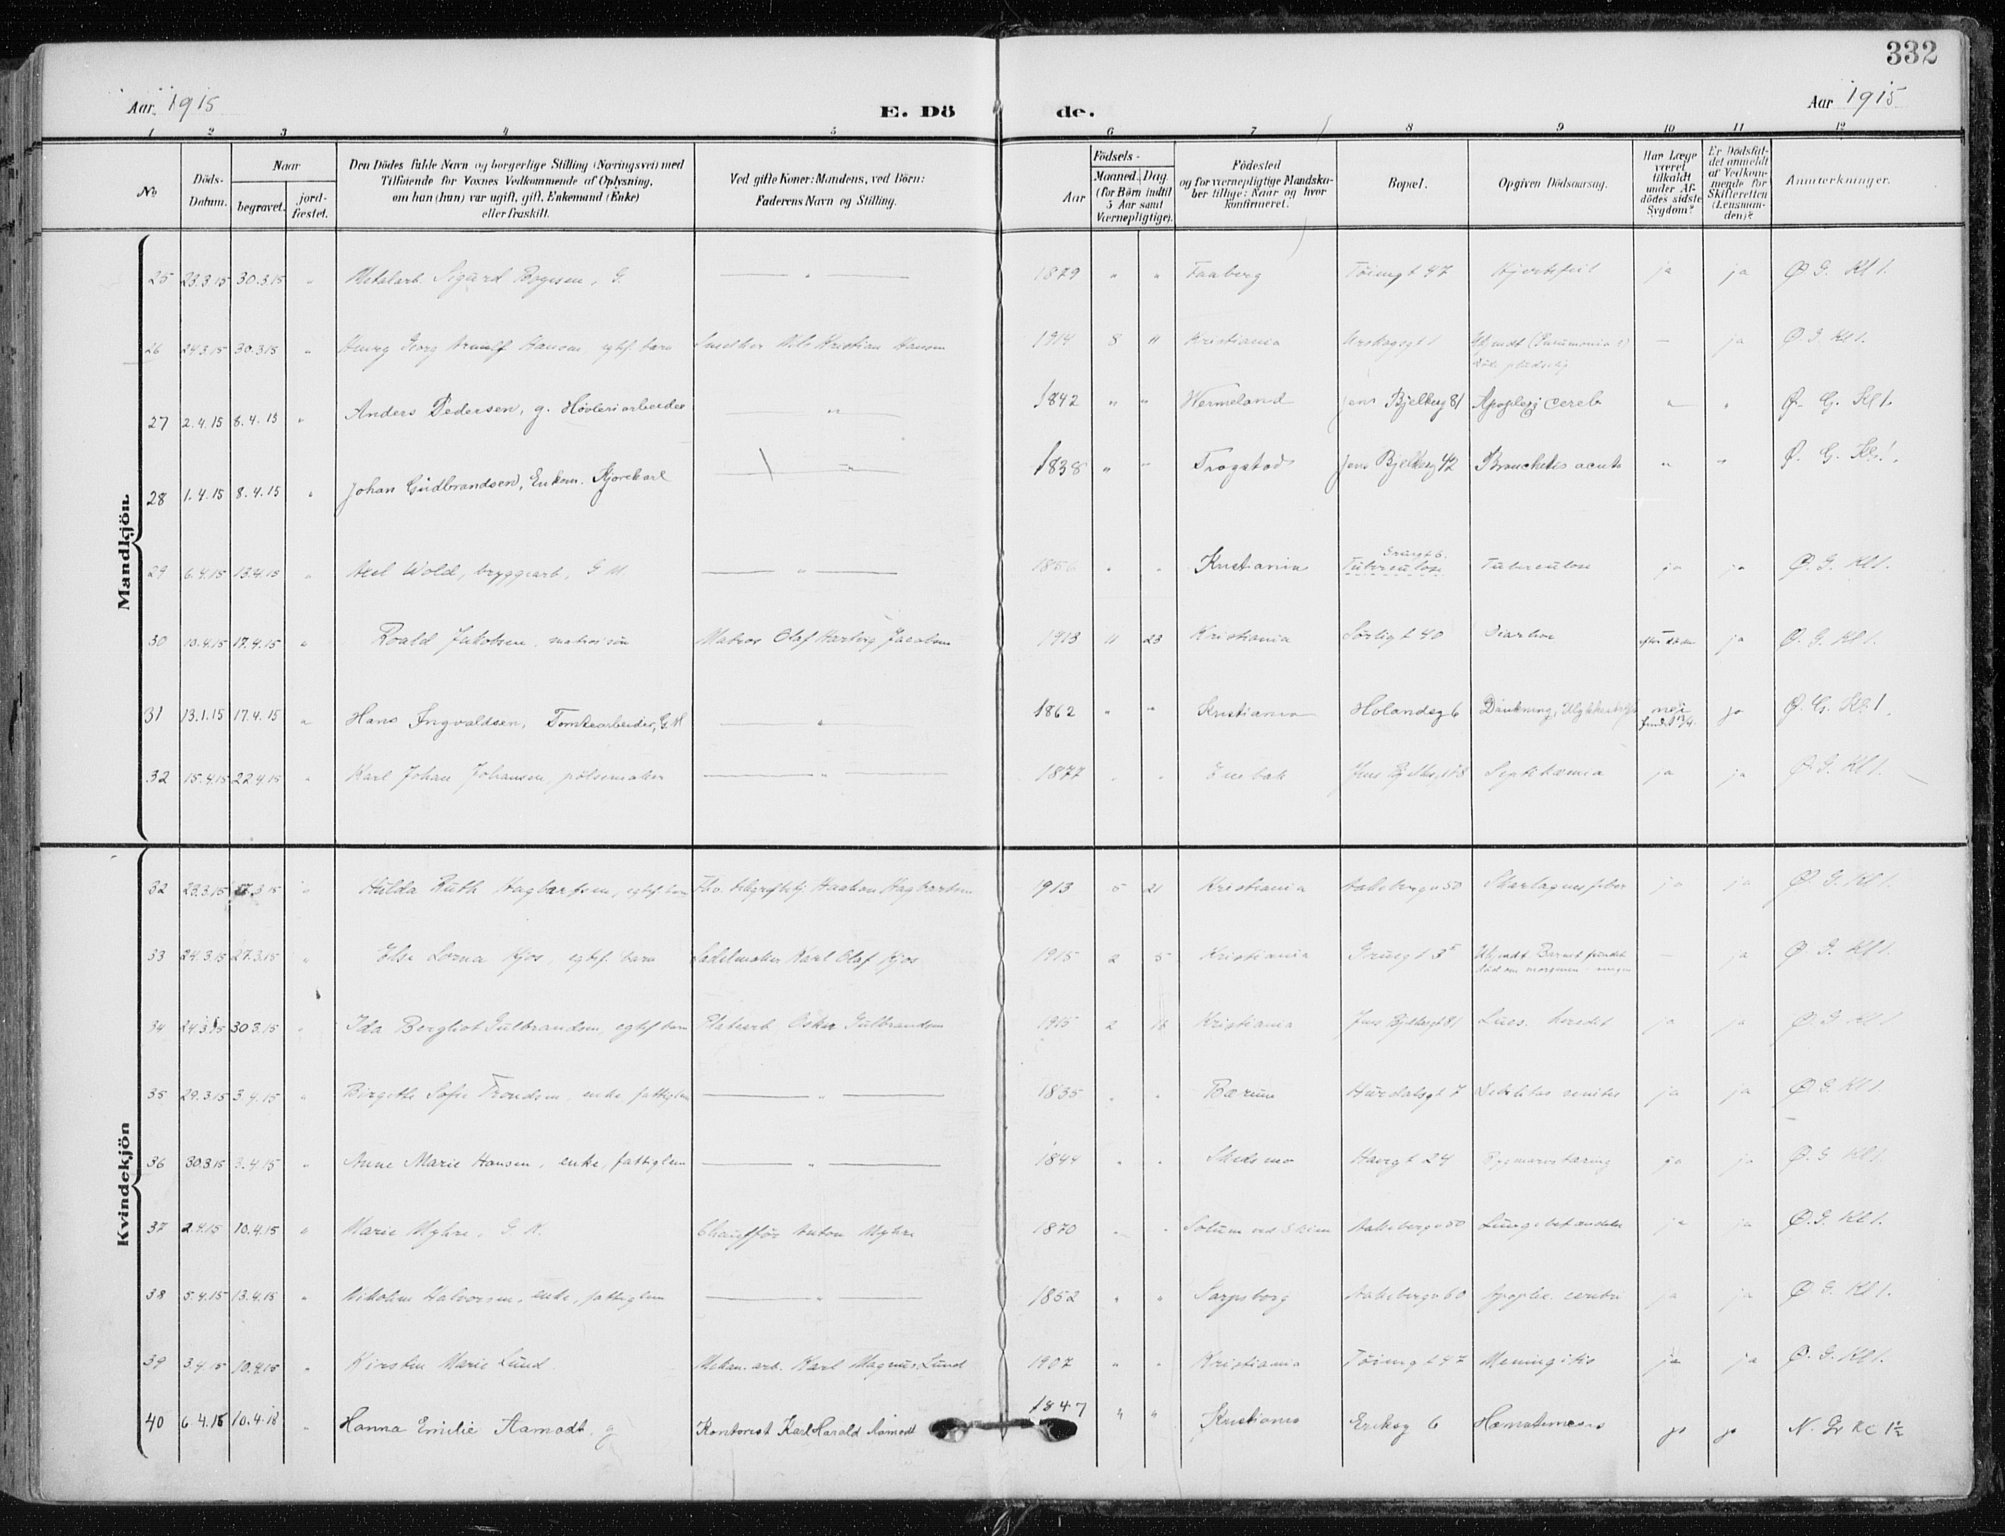 332
Aar 1915 E. Dö de. Aar 1915
1 2 3 4 5 6 7 8 9 10 11 12
No
Döds-Datum.
Naar
begravet.
jord-fæstet.
Den Dödes fulde Navn og borgerlige Stilling (Næringsvei) med
Tilföiende for Voxnes Vedkommende af Oplysning,
om han (hun) var ugift, gift, Enkemand (Enke)
eller fraskilt.
Ved gifte Koner: Mandens, ved Börn:
Faderens Navn og Stilling.
Födsels-
Aar
Maaned. Dag
(for Börn indtil
5 Aar samt
Værnepligtige).
Födested
og for værnepligtige Mandska-
ber tillige: Naar og hvor
konfirmeret.
Bopæl.
Opgiven Dödsaarsag.
Har Læge
været
tilkaldt
under Af-
dödes sidste
Sygdom?
Er Dödsfal-
det anmeldt
af Vedkom-
mende for
Skifteretten
(Lensman-
den)?
Anmerkninger.
Mandkjön.
25 23.3.15 30.3.15 " Metalarb. Sigurd Bogesen, G. — " — 1879 " " Faaberg Töiengt 47 Hjertefeil ja ja Ø. G. Kl 1.
26 24.3.15 30.3.15 " Georg Hansen, egtef. barn Nils Kristian Hansen 1914 8 11 Kristiania Urskogsgt 1 Ubendt (Pneumonia?) — ja Ø G. Kl 1.
död pludselig
27 2.4.15 8.4.15 " Anders Pedersen, g. Høvleriarbeider — " — 1842 " " Wermeland Jens Bjelkeg 81 Apoplexi cereb " " Ø. G. Kl 1.
28 1.4.15 8.4.15 " Johan Gudbrandsen, Enkem. Kjørekarl — " — 1838 " " Trøgstad Jens Bjelkeg 42 Bronchitis acuta " " Ø. G. Kl 1.
29 6.4.15 13.4.15 " Axel Wold, bryggearb., G M. — " — 1856 " " Kristiania Grünergt 6. Tuberculose Tuberculose ja ja Ø. G. Kl 1.
30 10.4.15 17.4.15 " Roald Jakobsen, Matros Olaf Jacobsen 1913 11 23 Kristiania Sørligt 40 Diarhoe — ja Ø. G. Kl 1.
31 13.1.15 17.4.15 " Hans Ingvaldsen, Tomtearbeider, G. M — " — 1862 " " Kristiania Holandsg 6 Drukning, nei ja Ø. G. Kl 1.
32 15.4.15 22.4.15 " Karl Johan Johansen, pølsemaker — " — 1877 " " Enebak Septikæmia ja ja Ø. G. Kl 1.
Kvindekjön
32 23.3.15 " Hilda Ruth Hagbartsen, egtef. barn Haakon Hagbartsen 1913 5 21 Kristiania Aakebergv 50 Skarlagensfeber ja ja Ø. G. Kl 1.
33 24.3.15 27.3.15 " Else Lorna Kjos, egtef. barn Sadelmaker Karl Olaf Kjos 1915 2 5 Kristiania Ubendt Barnet fundet — ja Ø. G. Kl 1.
död om morgenen i sengen
34 24.3.15 30.3.15 " Ida Bergliot Gulbrandsen, egtef barn Platearb. Oskar Gulbrandsen 1915 2 Kristiania Jens Bjelkesgt 81 Lues. hered. ja ja Ø. G. Kl 1.
35 29.3.15 3.4.15 " Birgithe Sofie Trondsen, enke, fattiglem — " — 1835 " " Bærum Hurdalsgt 7 Debilitas senilis ja ja Ø. G. Kl 1.
36 30.3.15 3.4.15 " Anne Marie Hansen, enke, fattiglem — " — 1844 " " Skedsmo Havgt 24 Rygmarvstæring ja ja Ø. G. Kl 1.
37 2.4.15 10.4.15 " Marie Myhre, G. K. Chauffør Anton Myhre 1870 " " Solum ved Skien Aakebergv 50 Lungebetændelse ja ja Ø. G. Kl 1.
38 5.4.15 13.4.15 " Halvorsen, enke, fattiglem — " — 1852 " " Sarpsborg Aakebergv 60 Apoplex. cerebri ja ja Ø G. Kl 1.
39 3.4.15 10.4.15 " Kirsten Marie Lund. Mekan. arb. Karl Magnus Lund 1907 " " Kristiania Töiengt 47 Meningitis ja ja Ø. G. Kl 1.
40 6.4.15 10.4.18 " Hanna Emilie Aamodt. g Kontorist Karl Harald Aamodt 1847 " " Kristiania Eriksg 6 Hæmatemesis ja ja N. Gr Kl 1½